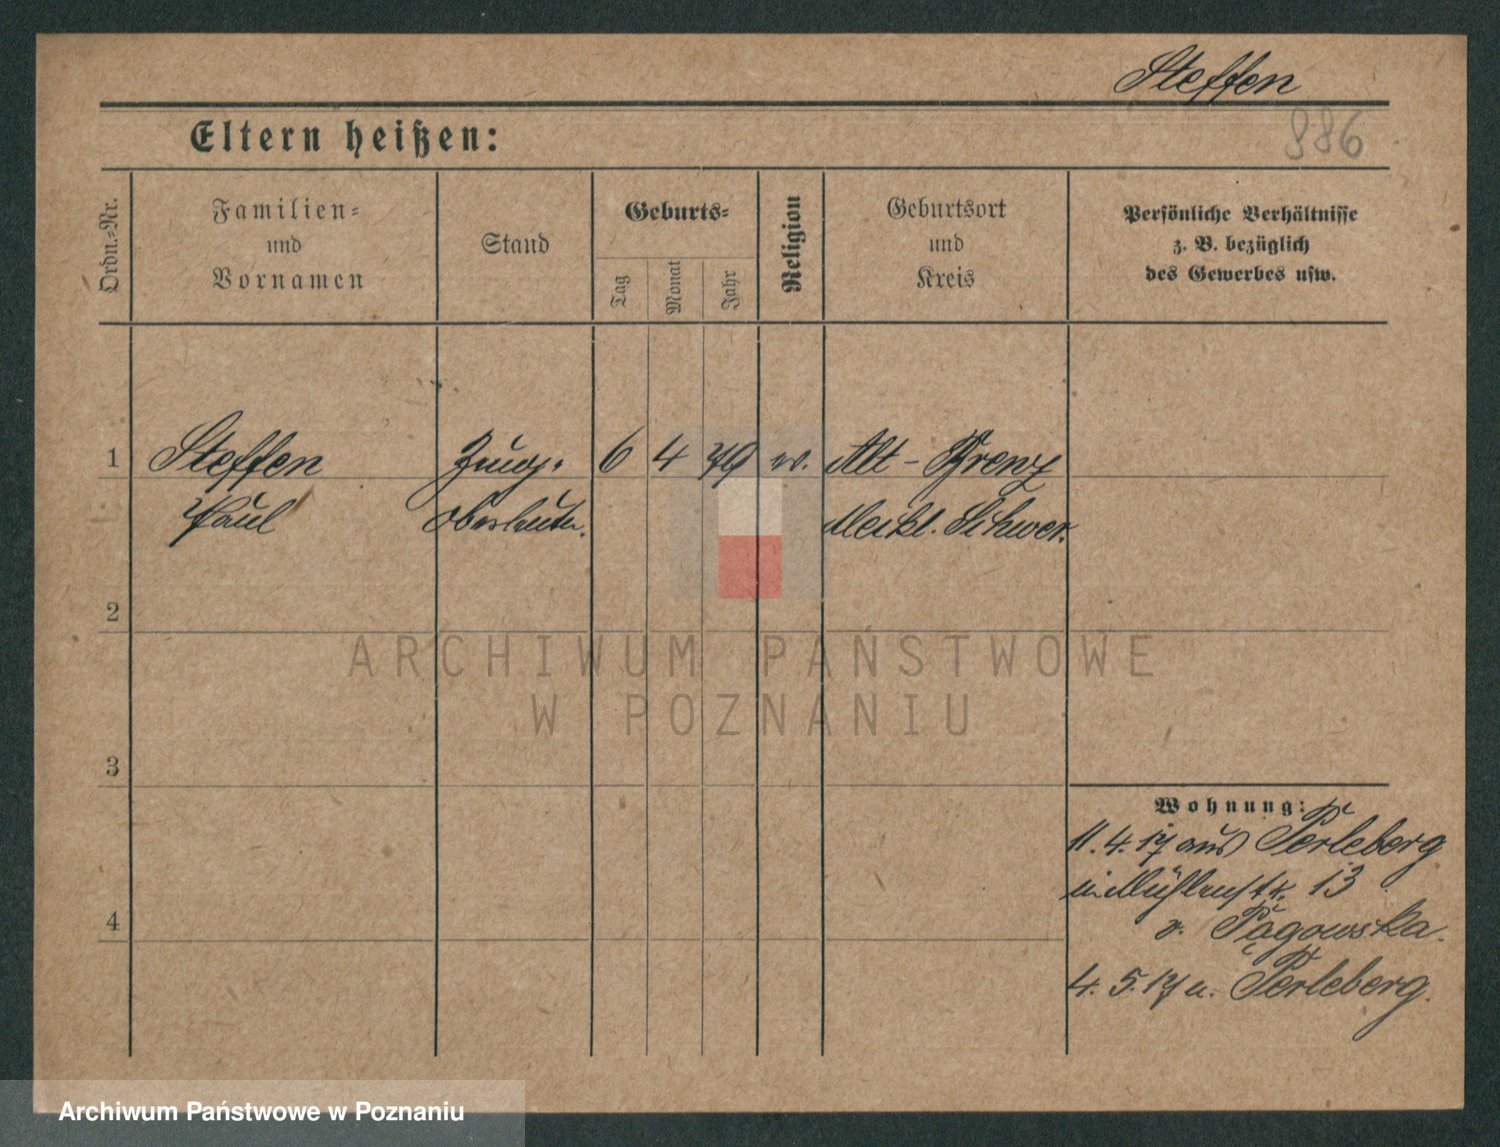 Steffen
886
Eltern heißen:
Ordn.-Nr.
Familien-
und
Vornamen
Stand
Geburts-
Tag
Monat
Jahr
Religion
Geburtsort
und
Kreis
Persönliche Verhältnisse
z. B. bezüglich
des Gewerbes usw.
1 Steffen Zeug- 6 4 79 ev. Alt-Krenz
Paul Meckl. Schwer.
2
3
4
Wohnung:
11.4.17 aus Perleberg
Mühlenstr. 13
Pągowska.
4.5.17 n. Perleberg.
ARCHIWUM PAŃSTWOWE
W POZNANIU
Archiwum Państwowe w Poznaniu